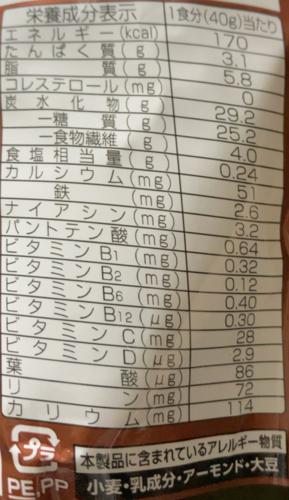 栄養成分表示 1食分(40g)当たり
エネルギー(kcal) 170
たんぱく質(g) 3.1
脂質(g) 5.8
コレステロール(mg) 0
炭水化物(g) 29.2
ー糖質(g) 25.2
ー食物繊維(g) 4.0
食塩相当量(g) 0.24
カルシウム(mg) 51
鉄(mg) 2.6
ナイアシン(mg) 3.2
パントテン酸(mg) 0.64
ビタミンB1(mg) 0.32
ビタミンB2(mg) 0.12
ビタミンB6(mg) 0.40
ビタミンB12(μg) 0.30
ビタミンC(mg) 28
ビタミンD(μg) 2.9
葉酸(μg) 86
リン(mg) 72
カリウム(mg) 114
プラ
PE,PP
本製品に含まれているアレルギー物質
小麦・乳成分・アーモンド・大豆